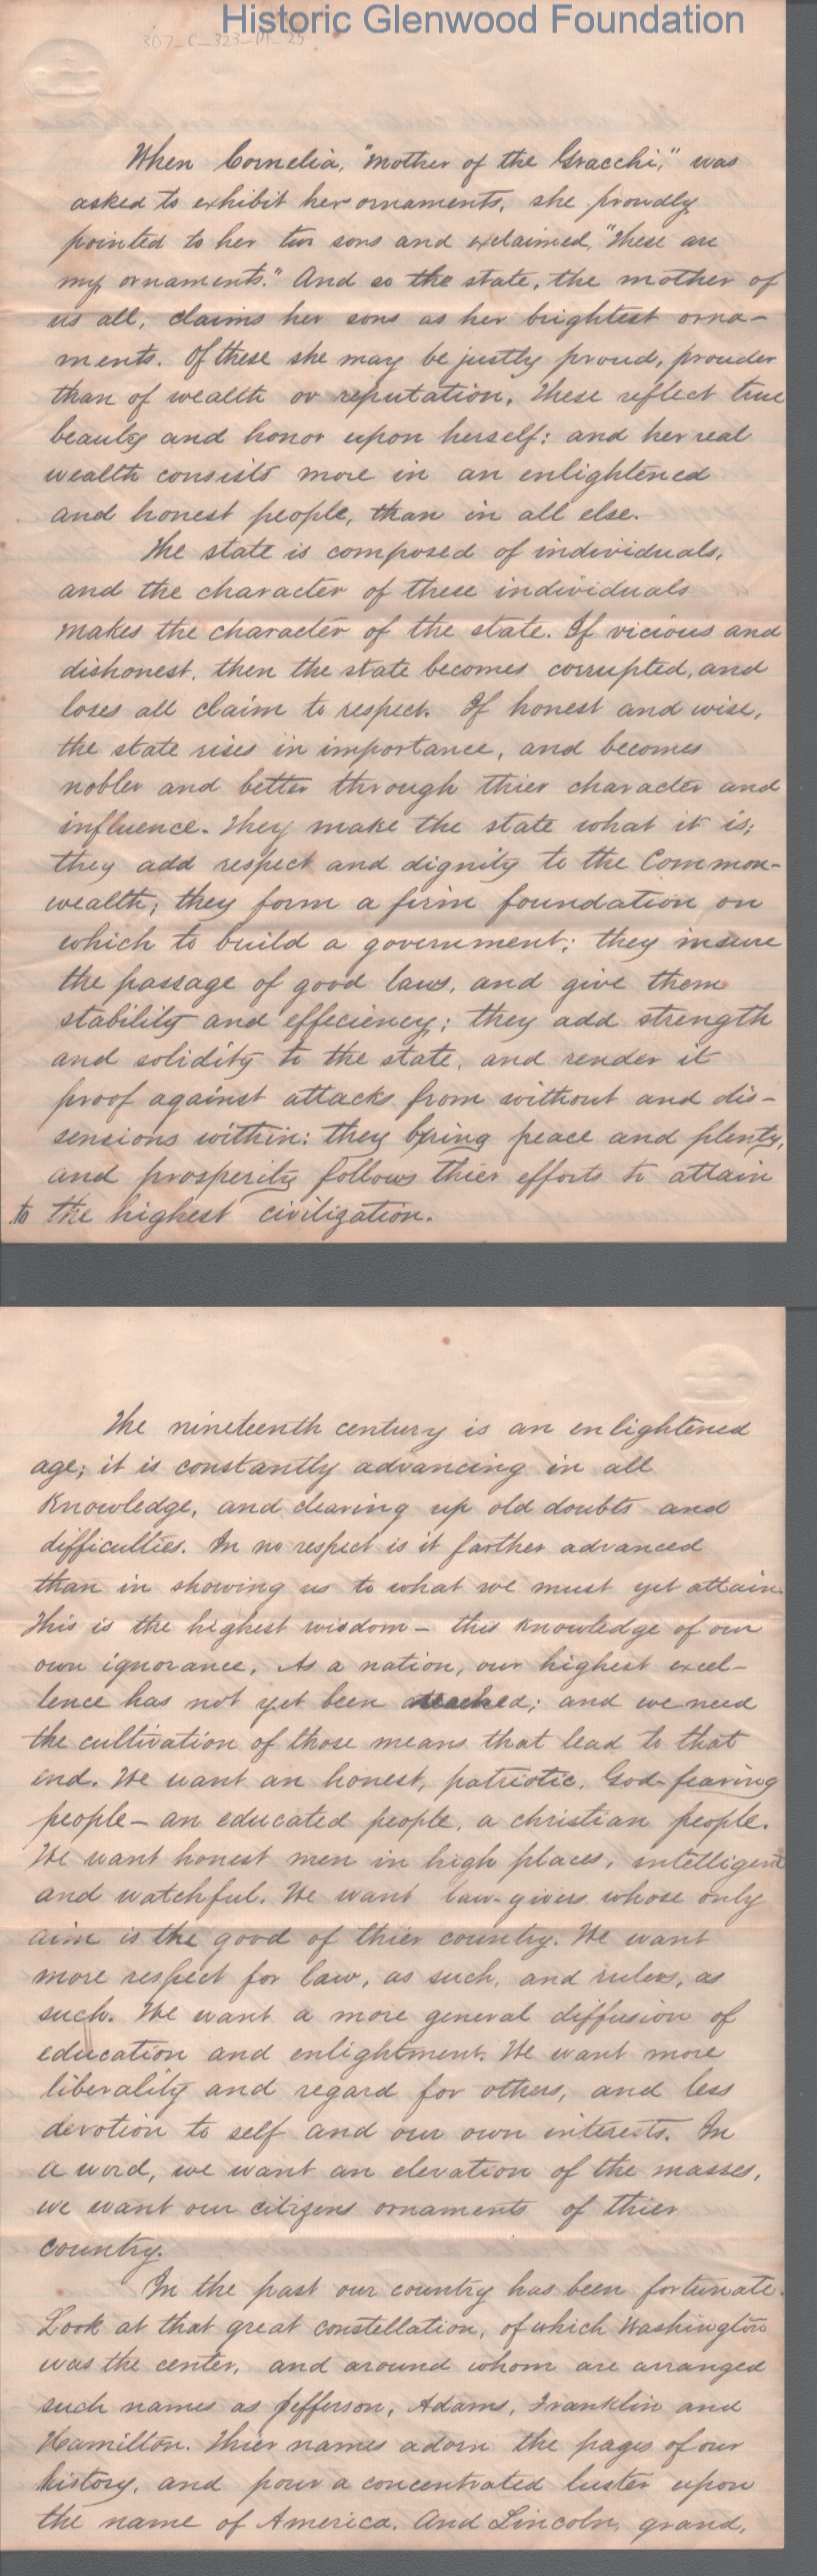 Historic Glenwood Foundation
307-C-323-M-25
When Cornelia, "mother of the Gracchi," was
asked to exhibit her ornaments, she proudly
pointed to her two sons and exclaimed, "These are
my ornaments." And so the state, the mother of
us all, claims her sons as her brightest orna-
ments. Of these she may be justly proud, prouder
than of wealth or reputation. These reflect true
beauty and honor upon herself; and her real
wealth consists more in an enlightened
and honest people, than in all else.
The state is composed of individuals,
and the character of these individuals
makes the character of the state. If vicious and
dishonest, then the state becomes corrupted, and
loses all claim to respect. If honest and wise,
the state rises in importance, and becomes
nobler and better through thier character and
influence. They make the state what it is;
they add respect and dignity to the Common-
wealth; they form a firm foundation on
which to build a government; they insure
the passage of good laws, and give them
stability and effeciency; they add strength
and solidity to the state, and render it
proof against attacks from without and dis-
sensions within: they bring peace and plenty,
and prosperity follows thier efforts to attain
to the highest civilization.
The nineteenth century is an enlightened
age; it is constantly advancing in all
Knowledge, and clearing up old doubts and
difficulties. In no respect is it farther advanced
than in showing us to what we must yet attain.
This is the highest wisdom - this knowledge of our
own ignorance. As a nation, our highest excel-
lence has not yet been reached; and we need
the cultivation of those means that lead to that
end. We want an honest, patriotic, God-fearing
people - an educated people, a christian people.
We want honest men in high places, intelligent
and watchful. We want law-givers whose only
aim is the good of thier country. We want
more respect for law, as such, and rulers, as
such. We want a more general diffusion of
education and enlightment. We want more
liberality and regard for others, and less
devotion to self and our own interests. In
a word, we want an elevation of the masses,
we want our citizens ornaments of thier
country.
In the past our country has been fortunate.
Look at that great constellation, of which Washington
was the center, and around whom are arranged
such names as Jefferson, Adams, Franklin and
Hamilton. Thier names adorn the pages of our
history, and pour a concentrated luster upon
the name of America. And Lincoln, grand,